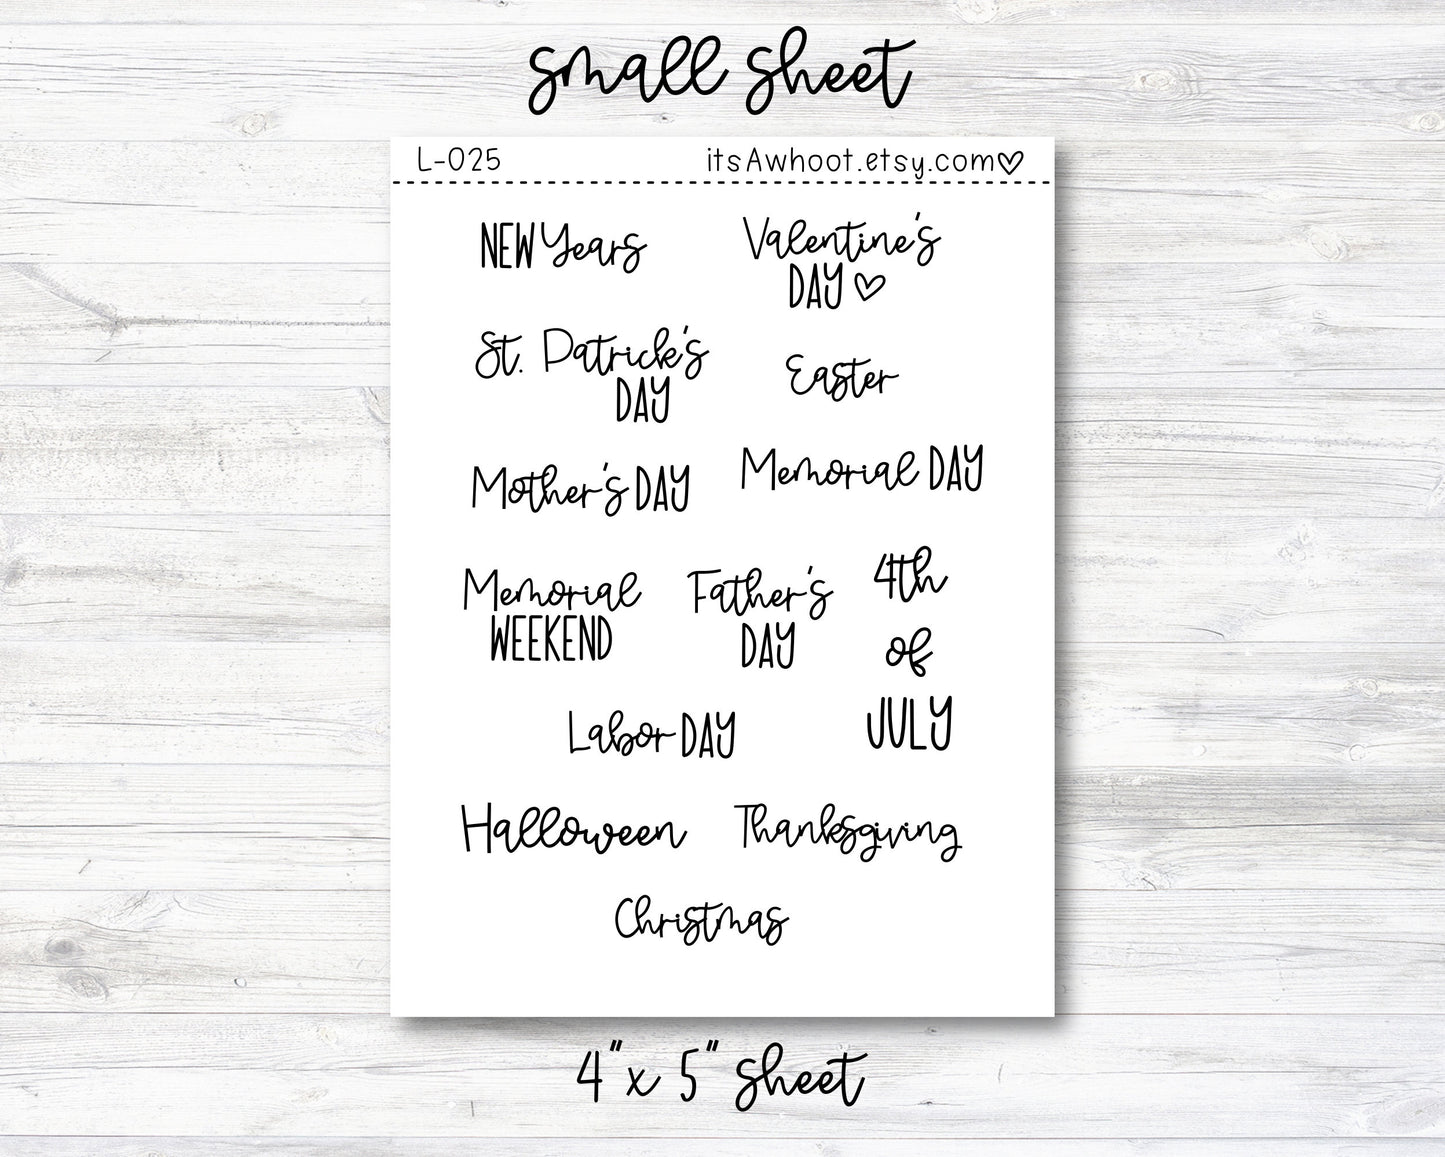 small sheet
L-025 itsAwhoot.etsy.com♡
NEW Years
Valentine's
DAY ♡
St. Patrick's
DAY
Easter
Mother's DAY
Memorial DAY
Memorial
WEEKEND
Father's
DAY
4th
of
JULY
Labor DAY
Halloween
Thanksgiving
Christmas
4" x 5" sheet